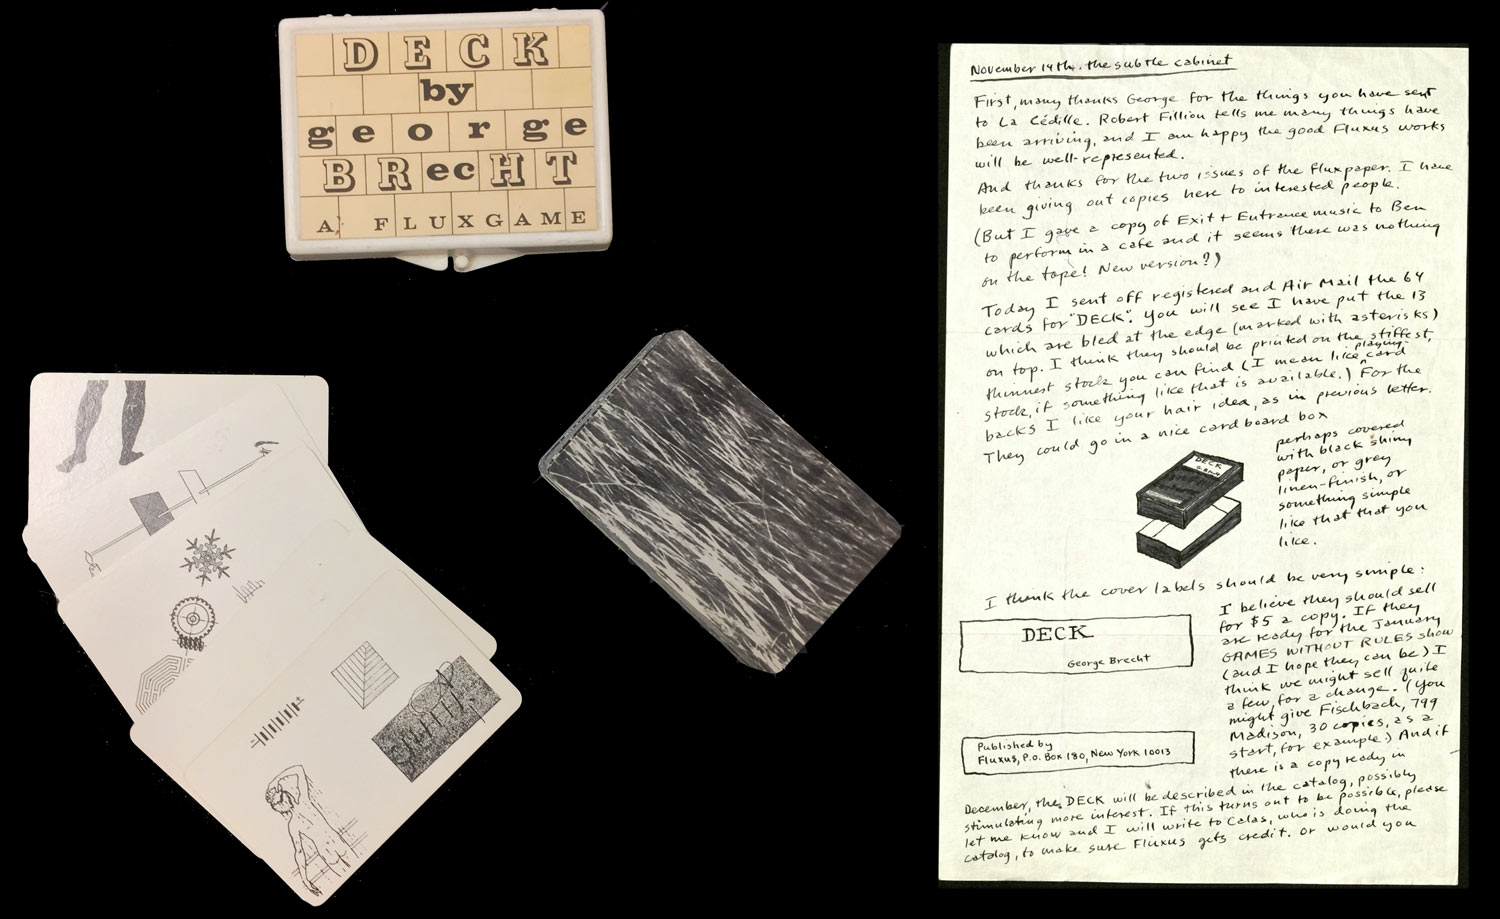 DECK
by
george
BRecHT
A FLUXGAME
November 14th. the subtle cabinet
First, many thanks George for the things you have sent
to La Cédille. Robert Filliou tells me many things have
been arriving, and I am happy the good Fluxus works
will be well-represented.
And thanks for the two issues of the fluxpaper. I have
been giving out copies here to interested people.
(But I gave a copy of Exit + Entrance music to Ben
to perform in a cafe and it seems there was nothing
on the tape! New version?)
Today I sent off registered and Air Mail the 64
cards for "DECK". You will see I have put the 13
which are bled at the edge (marked with asterisks)
on top. I think they should be printed on the stiffest,
thinnest stock you can find (I mean like playing-card
stock, if something like that is available.) For the
backs I like your hair idea, as in previous letter.
They could go in a nice cardboard box
perhaps covered
with black shiny
paper, or grey
linen-finish, or
something simple
like that that you
like.
DECK
G. Brecht
I think the cover labels should be very simple:
DECK
George Brecht
Published by
Fluxus, P.O. Box 180, New York 10013
I believe they should sell
for $5 a copy. If they
are ready for the January
GAMES WITHOUT RULES show
(and I hope they can be) I
think we might sell quite
a few, for a change. (You
might give Fischbach, 799
Madison, 30 copies, as a
start, for example.) And if
there is a copy ready in
December, the DECK will be described in the catalog, possibly
stimulating more interest. If this turns out to be possible, please
let me know and I will write to Calas, who is doing the
catalog, to make sure Fluxus gets credit. Or would you